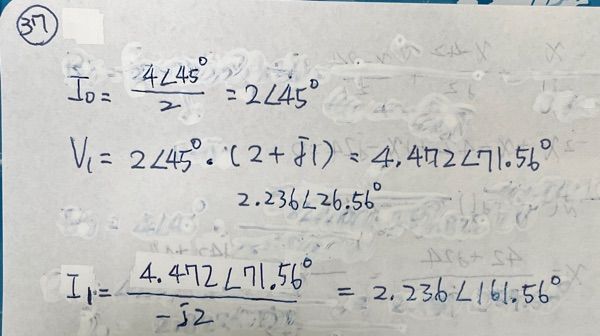 37
I₀ = 4∠45° / 2 = 2∠45°
V₁ = 2∠45° · (2 + j1) = 4.472∠71.56°
2.236∠26.56°
I₁ = 4.472∠71.56° / -j2 = 2.236∠161.56°